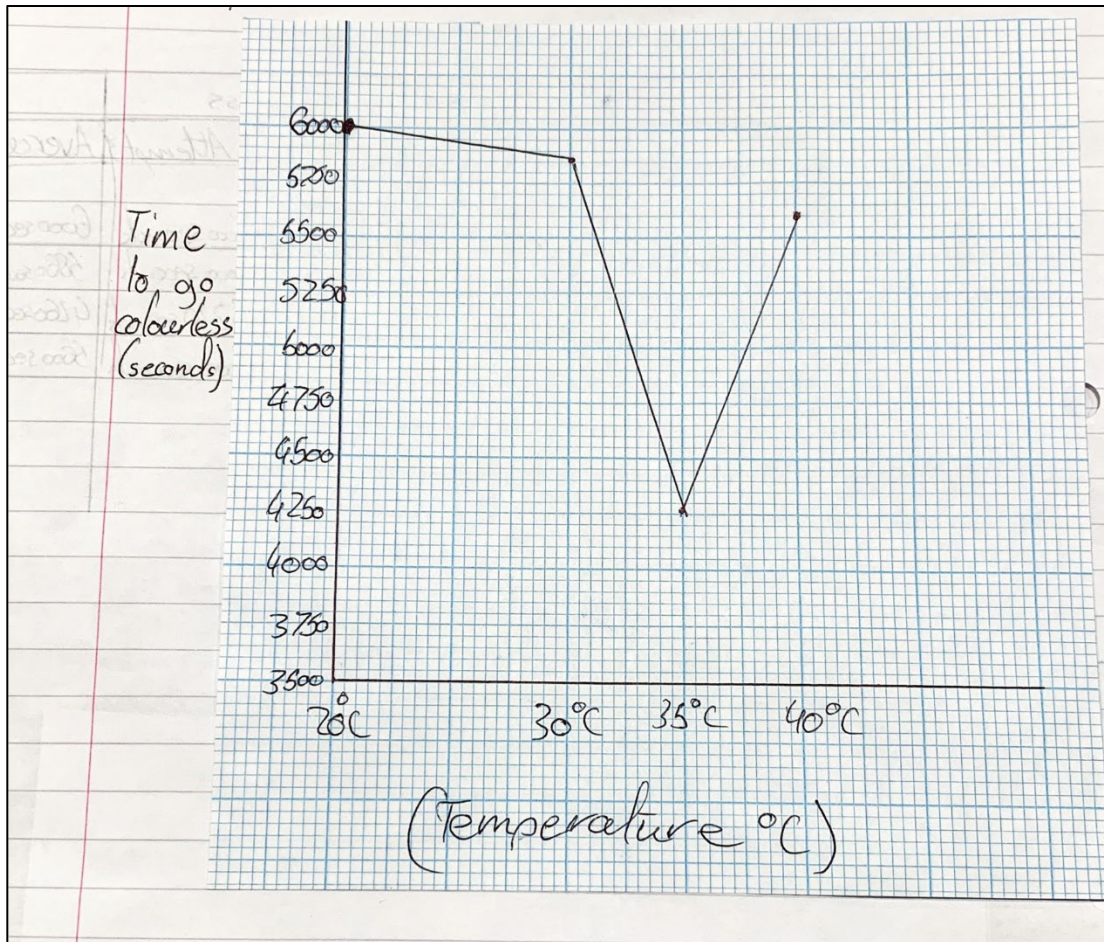 6000
5250
5500
5250
6000
4750
4500
4250
4000
3750
3500
Time
to go
colourless
(seconds)
20°C 30°C 35°C 40°C
(Temperature °C)